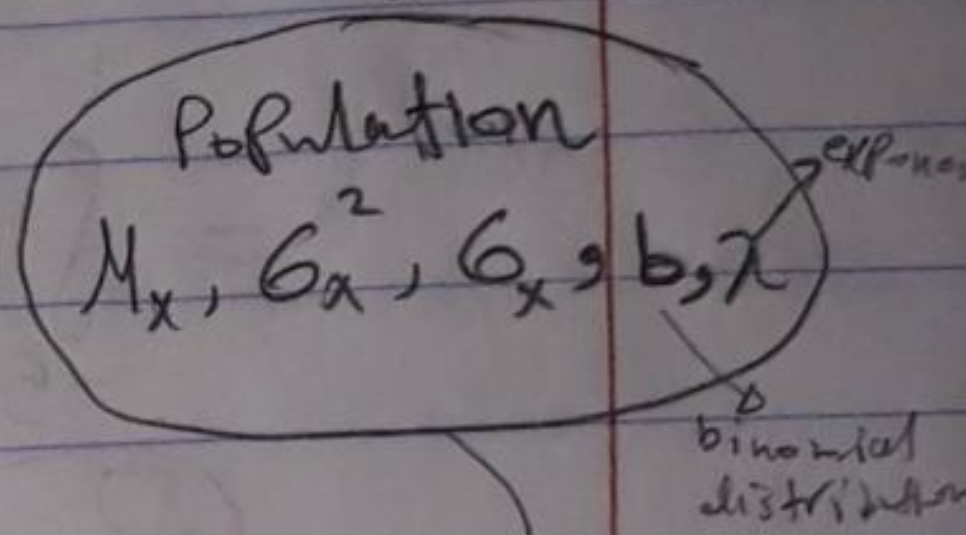 Population
μx, σx², σx, b, λ
binomial
distribution